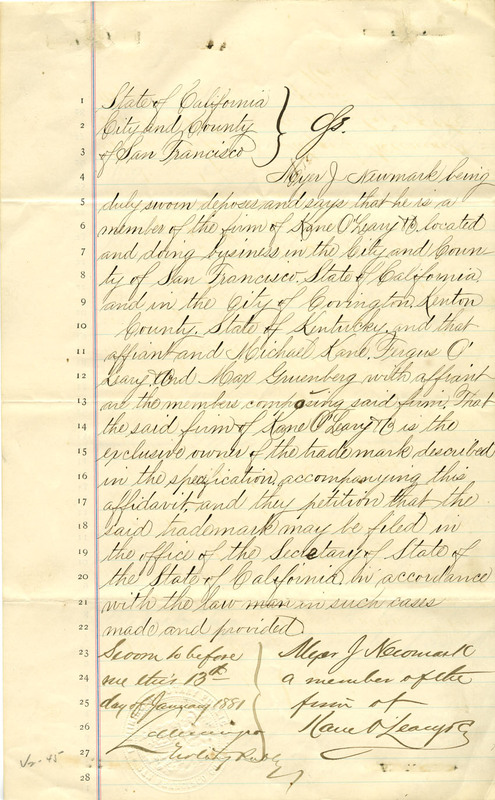 1 State of California
2 City and County } Ss.
3 of San Francisco
4 Myer J Newmark being
5 duly sworn deposes and says that he is a
6 member of the firm of Kane O'Leary & Co. located
7 and doing business in the City and Coun-
8 ty of San Francisco. State of California
9 and in the City of Covington. Kenton
10 County. State of Kentucky. and that
11 affiant and Michael Kane. Fergus O'
12 Leary. And Max Gruenberg with affiant
13 are the members composing said firm. That
14 the said firm of Kane O'Leary & Co is the
15 exclusive owner of the trademark described
16 in the specification accompanying this
17 affidavit. and they petition that the
18 said trademark may be filed in
19 the office of the Secretary of State of
20 the State of California in accordance
21 with the law in such cases
22 made and provided.
23 Sworn to before
24 me this 13th
25 day of January 1881
26
27 Notary Public
28
Myer J Newmark
a member of the
firm of
Kane O'Leary & Co